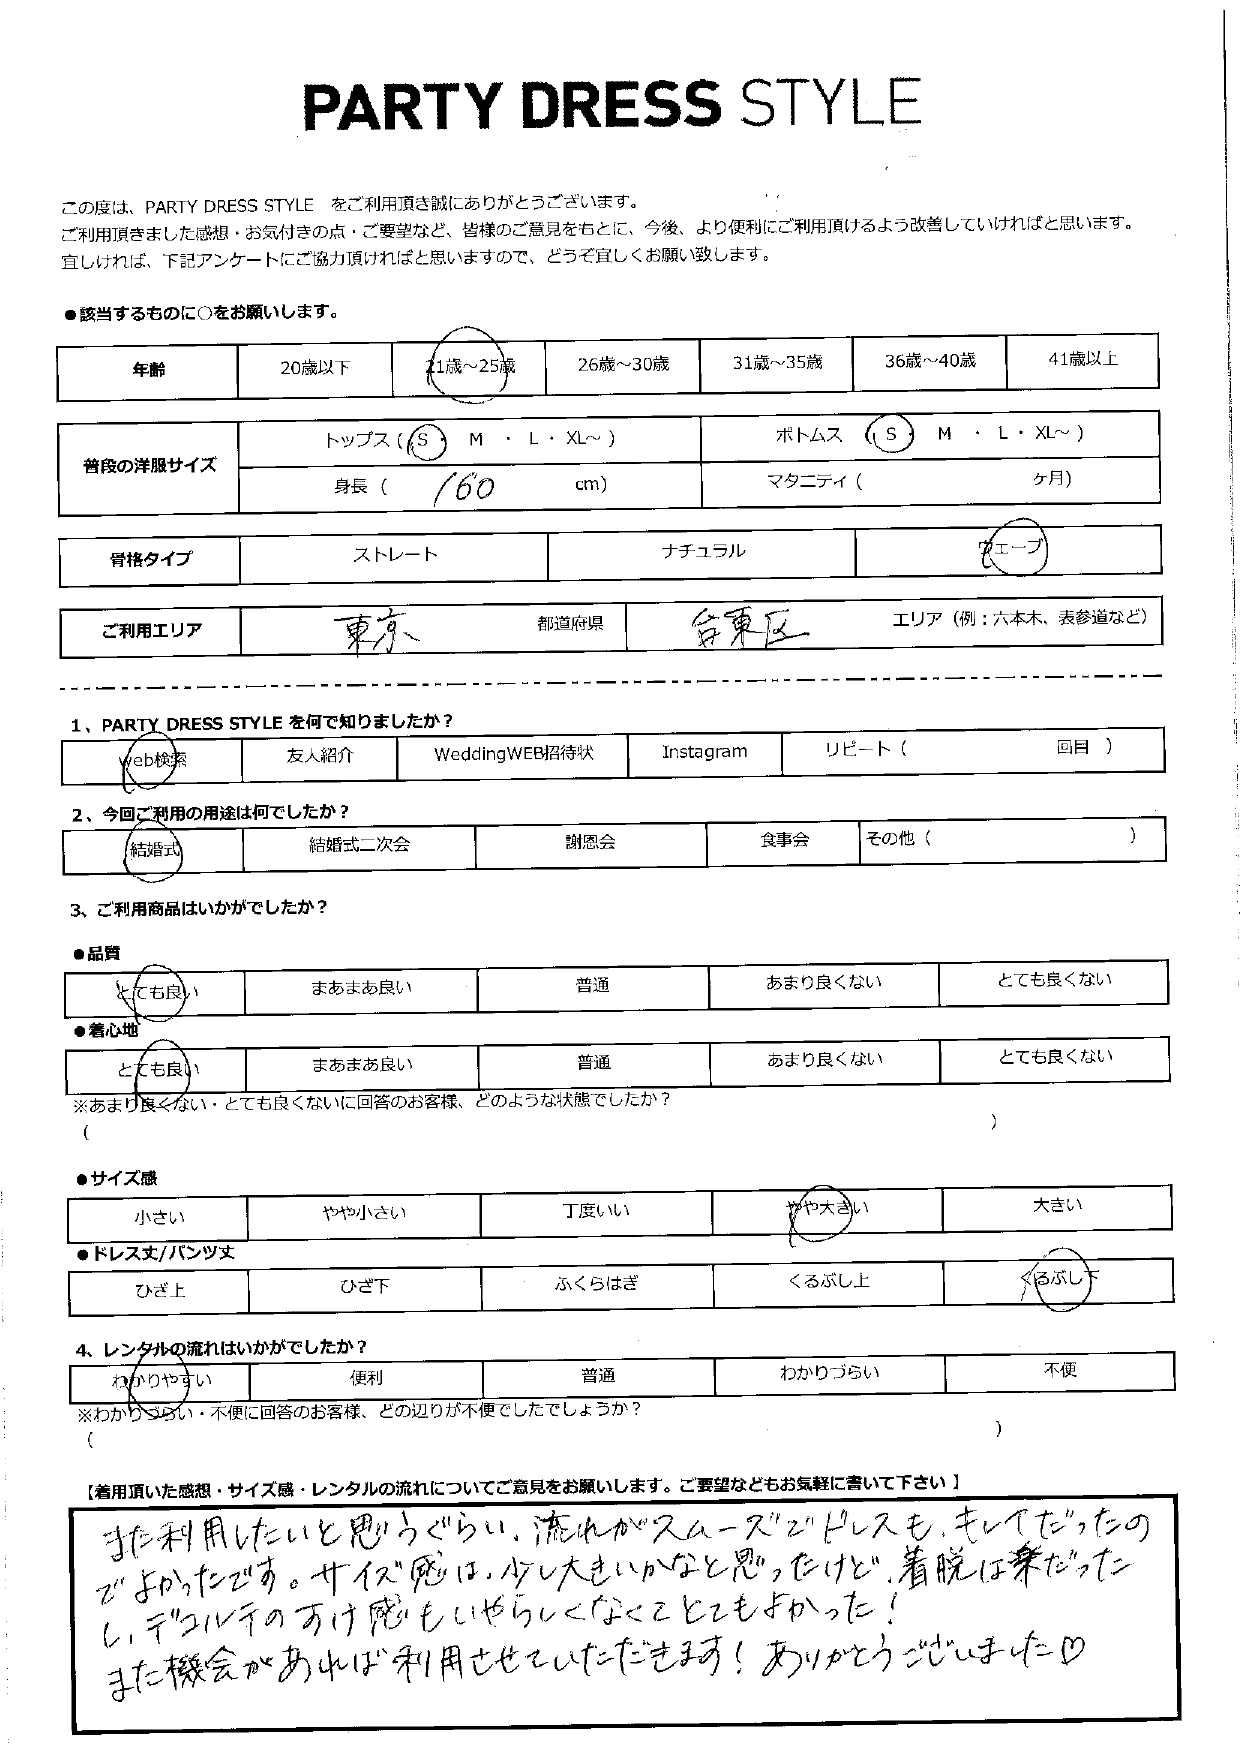 PARTY DRESS STYLE
この度は、PARTY DRESS STYLE をご利用頂き誠にありがとうございます。
ご利用頂きました感想・お気付きの点・ご要望など、皆様のご意見をもとに、今後、より便利にご利用頂けるよう改善していければと思います。
宜しければ、下記アンケートにご協力頂ければと思いますので、どうぞ宜しくお願い致します。
●該当するものに○をお願いします。
年齢 20歳以下 21歳～25歳 26歳～30歳 31歳～35歳 36歳～40歳 41歳以上
普段の洋服サイズ
トップス ( S ・ M ・ L ・ XL～ ) ボトムス ( S ・ M ・ L ・ XL～ )
身長 ( 160 cm) マタニティ ( ヶ月)
骨格タイプ ストレート ナチュラル ウェーブ
ご利用エリア 東京 都道府県 台東区 エリア（例：六本木、表参道など）
1、PARTY DRESS STYLE を何で知りましたか？
web検索 友人紹介 WeddingWEB招待状 Instagram リピート ( 回目 )
2、今回ご利用の用途は何でしたか？
結婚式 結婚式二次会 謝恩会 食事会 その他 ( )
3、ご利用商品はいかがでしたか？
●品質
とても良い まあまあ良い 普通 あまり良くない とても良くない
●着心地
とても良い まあまあ良い 普通 あまり良くない とても良くない
※あまり良くない・とても良くないに回答のお客様、どのような状態でしたか？
( )
●サイズ感
小さい やや小さい 丁度いい やや大きい 大きい
●ドレス丈/パンツ丈
ひざ上 ひざ下 ふくらはぎ くるぶし上 くるぶし下
4、レンタルの流れはいかがでしたか？
わかりやすい 便利 普通 わかりづらい 不便
※わかりづらい・不便に回答のお客様、どの辺りが不便でしたでしょうか？
( )
【着用頂いた感想・サイズ感・レンタルの流れについてご意見をお願いします。ご要望などもお気軽に書いて下さい 】
また利用したいと思うぐらい、流れがスムーズでドレスも、キレイだったの
でよかったです。サイズ感は、少し大きいかなと思ったけど、着脱は楽だった
し、デコルテのすけ感もいやらしくなくてとてもよかった！
また機会があれば利用させていただきます！ありがとうございました♡